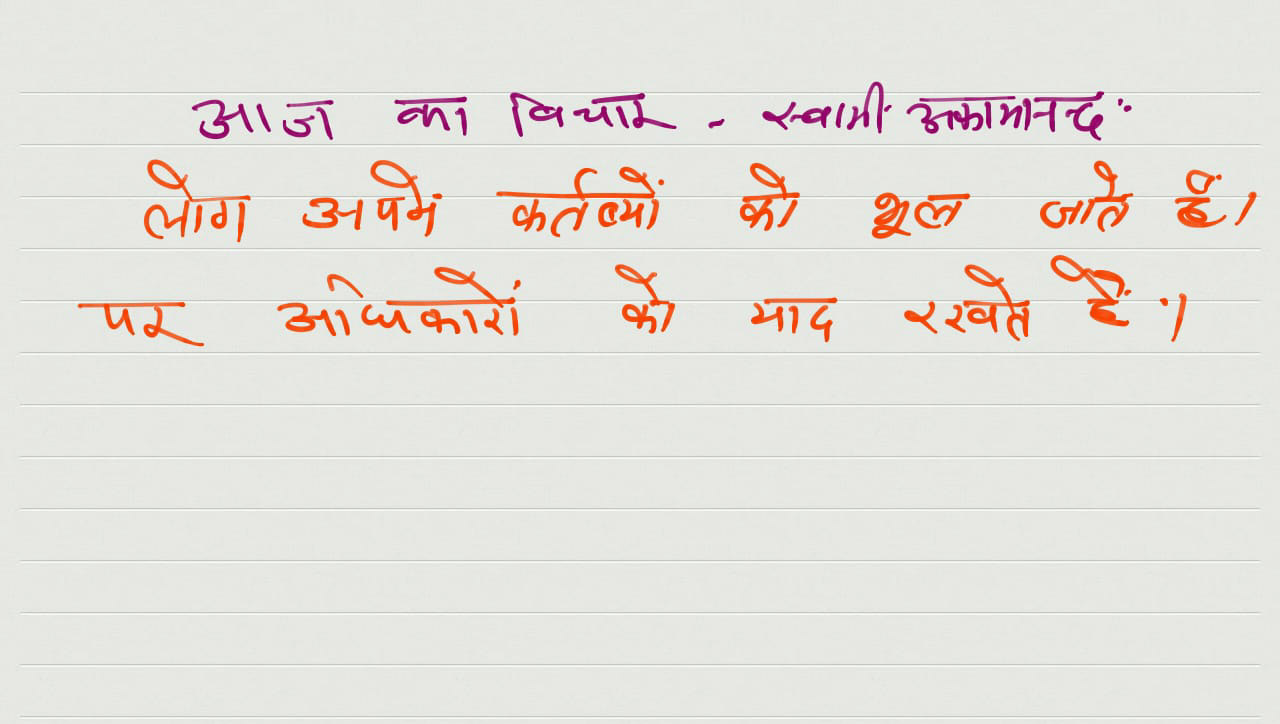 आज का विचार - स्वामी अकामानन्द :
लोग अपने कर्तव्यों को भूल जाते हैं।
पर अधिकारों को याद रखते हैं ।